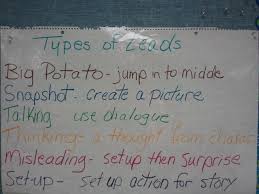 Types of Leads
Big Potato - jump in to middle
Snapshot - create a picture
Talking - use dialogue
Thinking - a thought from charac
Misleading - setup then Surprise
Set-up - set up action for story